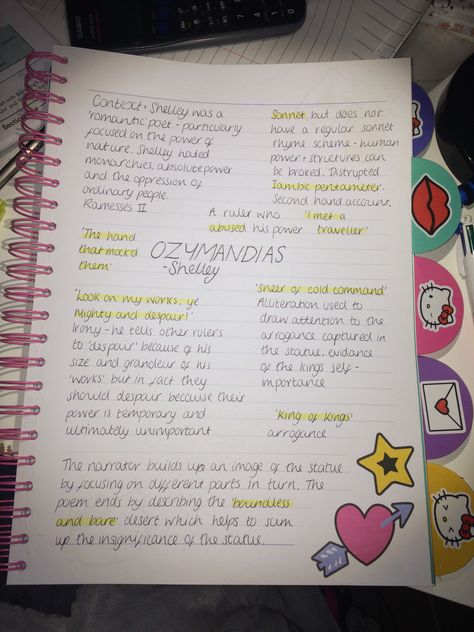 CASIO
Context - Shelley was a
'romantic' poet - particularly
focused on the power of
nature. Shelley hated
monarchies, absolute power
and the oppression of
ordinary people.
Ramesses II
Sonnet but does not
have a regular sonnet
rhyme scheme - human
power + structures can
be broked. Distrupted
Iambic pentameter.
Second hand account.
'I met a
traveller'
A ruler who
abused his power
'The hand
that mock'd
them'
OZYMANDIAS
- Shelley
'Look on my works, ye
Mighty and despair!'
Irony - he tells other rulers
to 'despair' because of his
size and grandeur of his
'works' but in fact they
should despair because their
power is temporary and
ultimately unimportant
'sneer of cold command'
Alliteration used to
draw attention to the
arrogance captured in
the statue, evidence
of the kings self-
importance
'King of Kings'
arrogance
The narrator builds up an image of the statue
by focusing on different parts in turn. The
poem ends by describing the 'boundless
and bare' desert which helps to sum
up the insignificance of the statue.